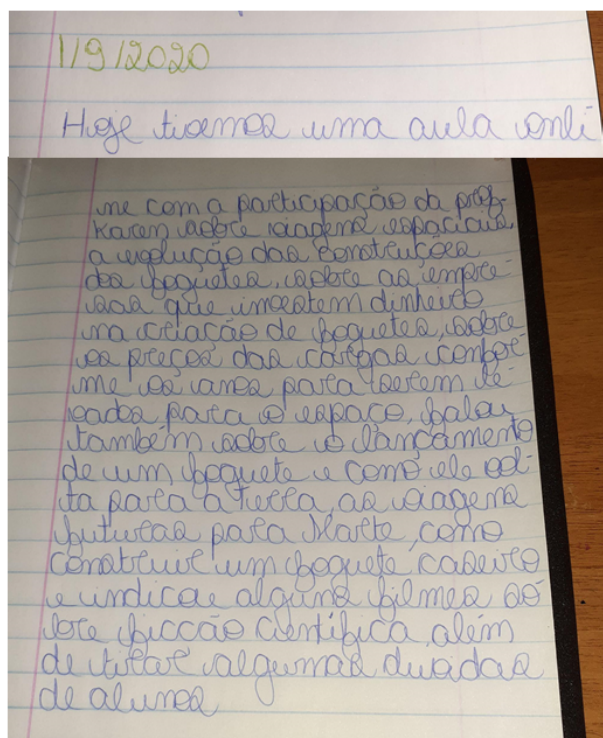 1/9/2020
Hoje tivemos uma aula onli
ne com a participação da prof.
Karen sobre viagens espaciais,
a evolução das construções
dos foguetes, sobre as empre-
sas que investem dinheiro
na criação de foguetes, sobre
os preços das cargas confor
me os anos para serem le-
vados para o espaço, falou
também sobre o lançamento
de um foguete e como ele vol-
ta para a terra, as viagens
futuras para Marte, como
construir um foguete caseiro
e indicou alguns filmes so
bre ficcão científica, além
de tirar algumas duvidas
de alunos